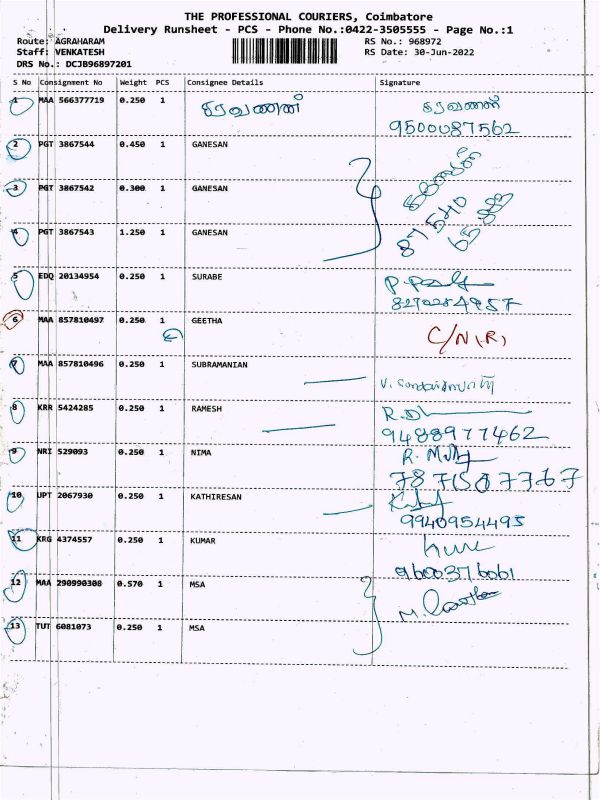 THE PROFESSIONAL COURIERS, Coimbatore
Delivery Runsheet - PCS - Phone No.:0422-3505555 - Page No.:1
Route: AGRAHARAM RS No.: 968972
Staff: VENKATESH RS Date: 30-Jun-2022
DRS No.: DCJB96897201
S No Consignment No Weight PCS Consignee Details Signature
1 MAA 566377719 0.250 1 சரவணன் சரவணன்
9500087562
2 PGT 3867544 0.450 1 GANESAN
3 PGT 3867542 0.300 1 GANESAN
87540
4 PGT 3867543 1.250 1 GANESAN
5 EDQ 20134954 0.250 1 SURABE
8270284957
6 MAA 857810497 0.250 1 GEETHA C/N(R)
7 MAA 857810496 0.250 1 SUBRAMANIAN
8 KRR 5424285 0.250 1 RAMESH
9488977462
9 NRI 529093 0.250 1 NIMA
7871507767
10 UPT 2067930 0.250 1 KATHIRESAN
9940954495
11 KRG 4374557 0.250 1 KUMAR
9600376061
12 MAA 290990308 0.570 1 MSA
13 TUT 6081073 0.250 1 MSA